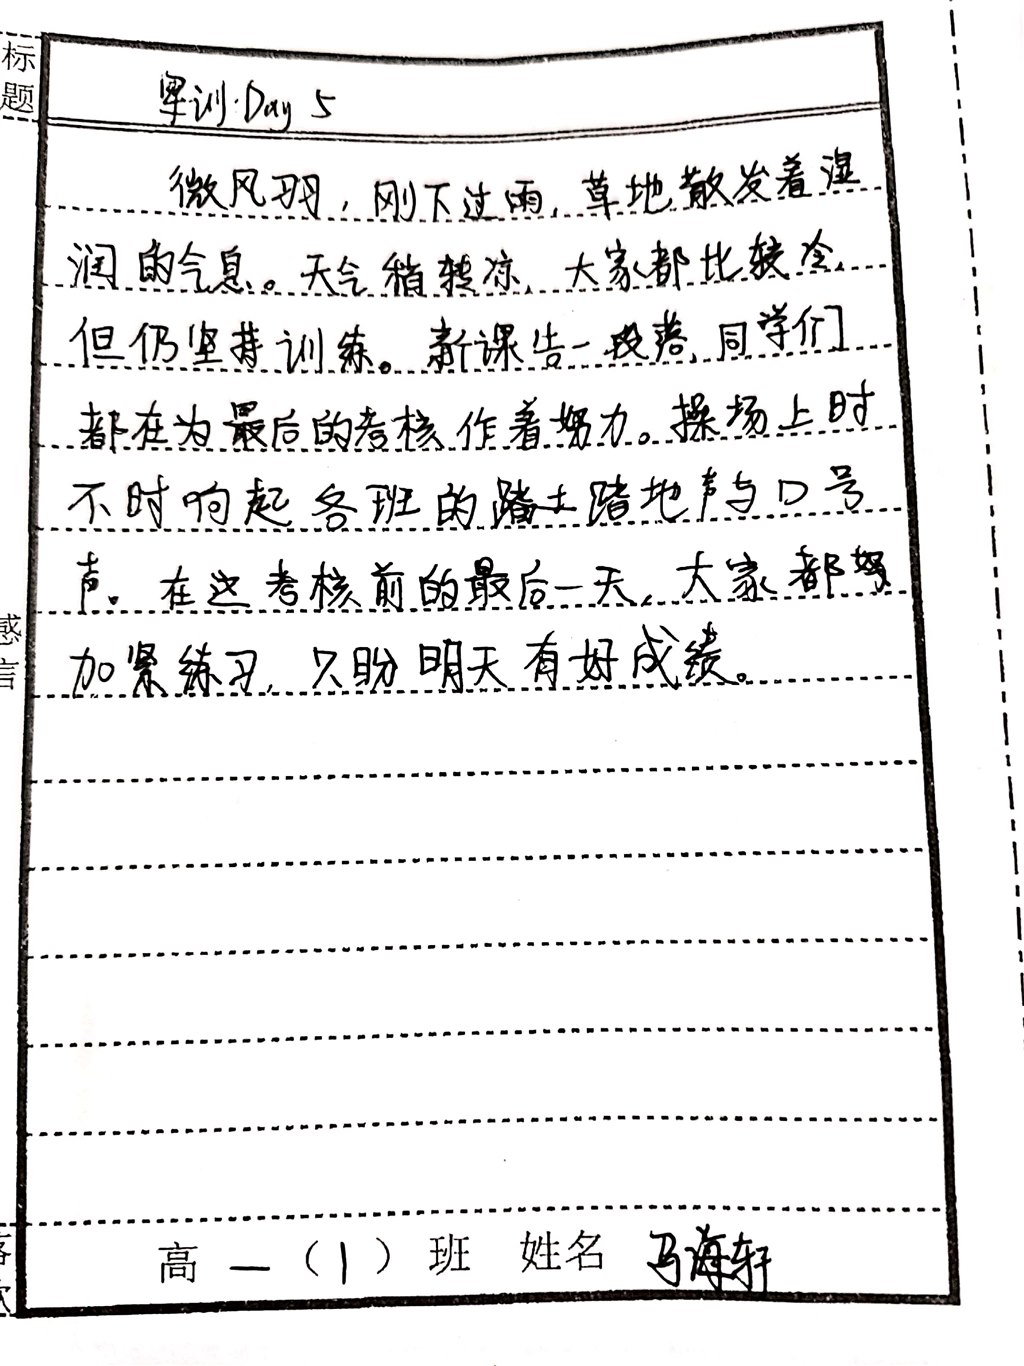 标题
军训·Day 5
微风习习，刚下过雨，草地散发着湿
润的气息。天气稍转凉，大家都比较冷，
但仍坚持训练。新课告一段落，同学们
都在为最后的考核作着努力。操场上时
不时响起各班的踏土踏地声与口号
声。在这考核前的最后一天，大家都努
加紧练习，只盼明天有好成绩。
感言
落款
高一（1）班 姓名 马海轩